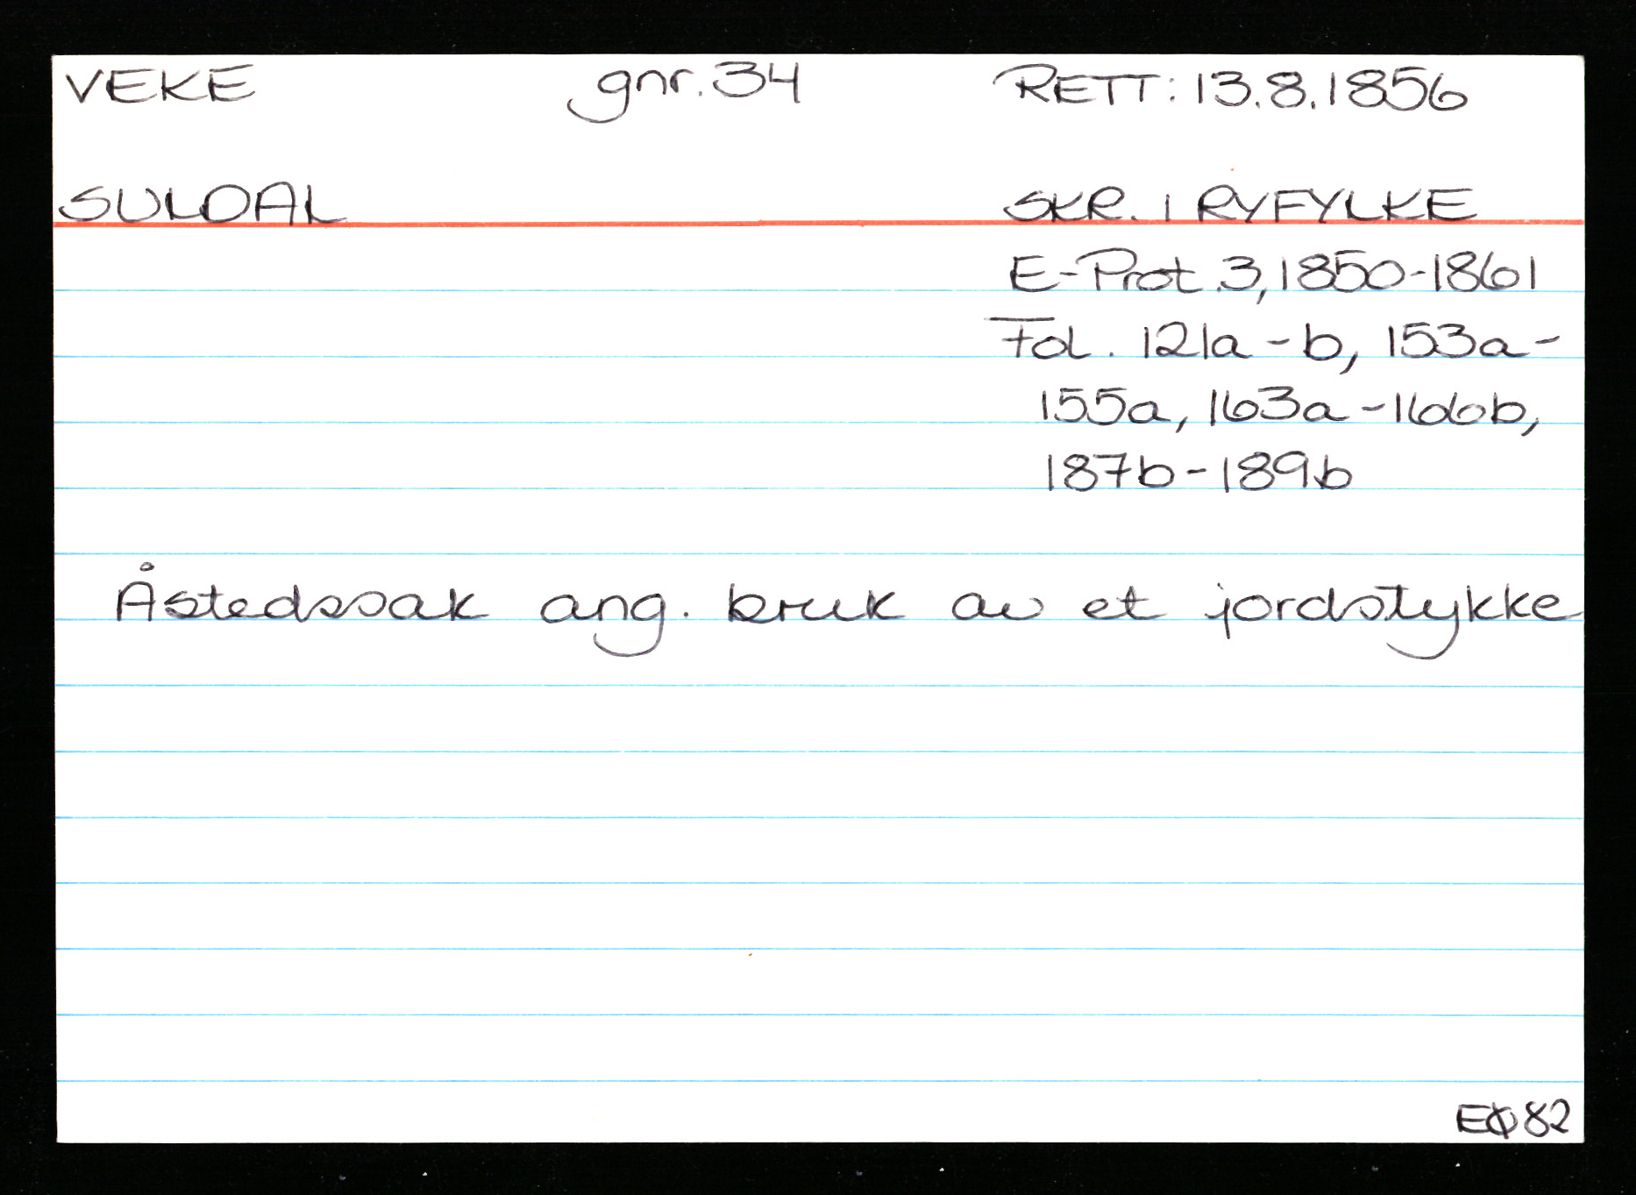 VEKE gnr. 34 RETT: 13.8.1856
SULDAL SKR. I RYFYLKE
E-Prot. 3, 1850-1861
Fol. 121a - b, 153a -
155a, 163a - 166b,
187b - 189b
Åstedssak ang. bruk av et jordstykke
EØ82